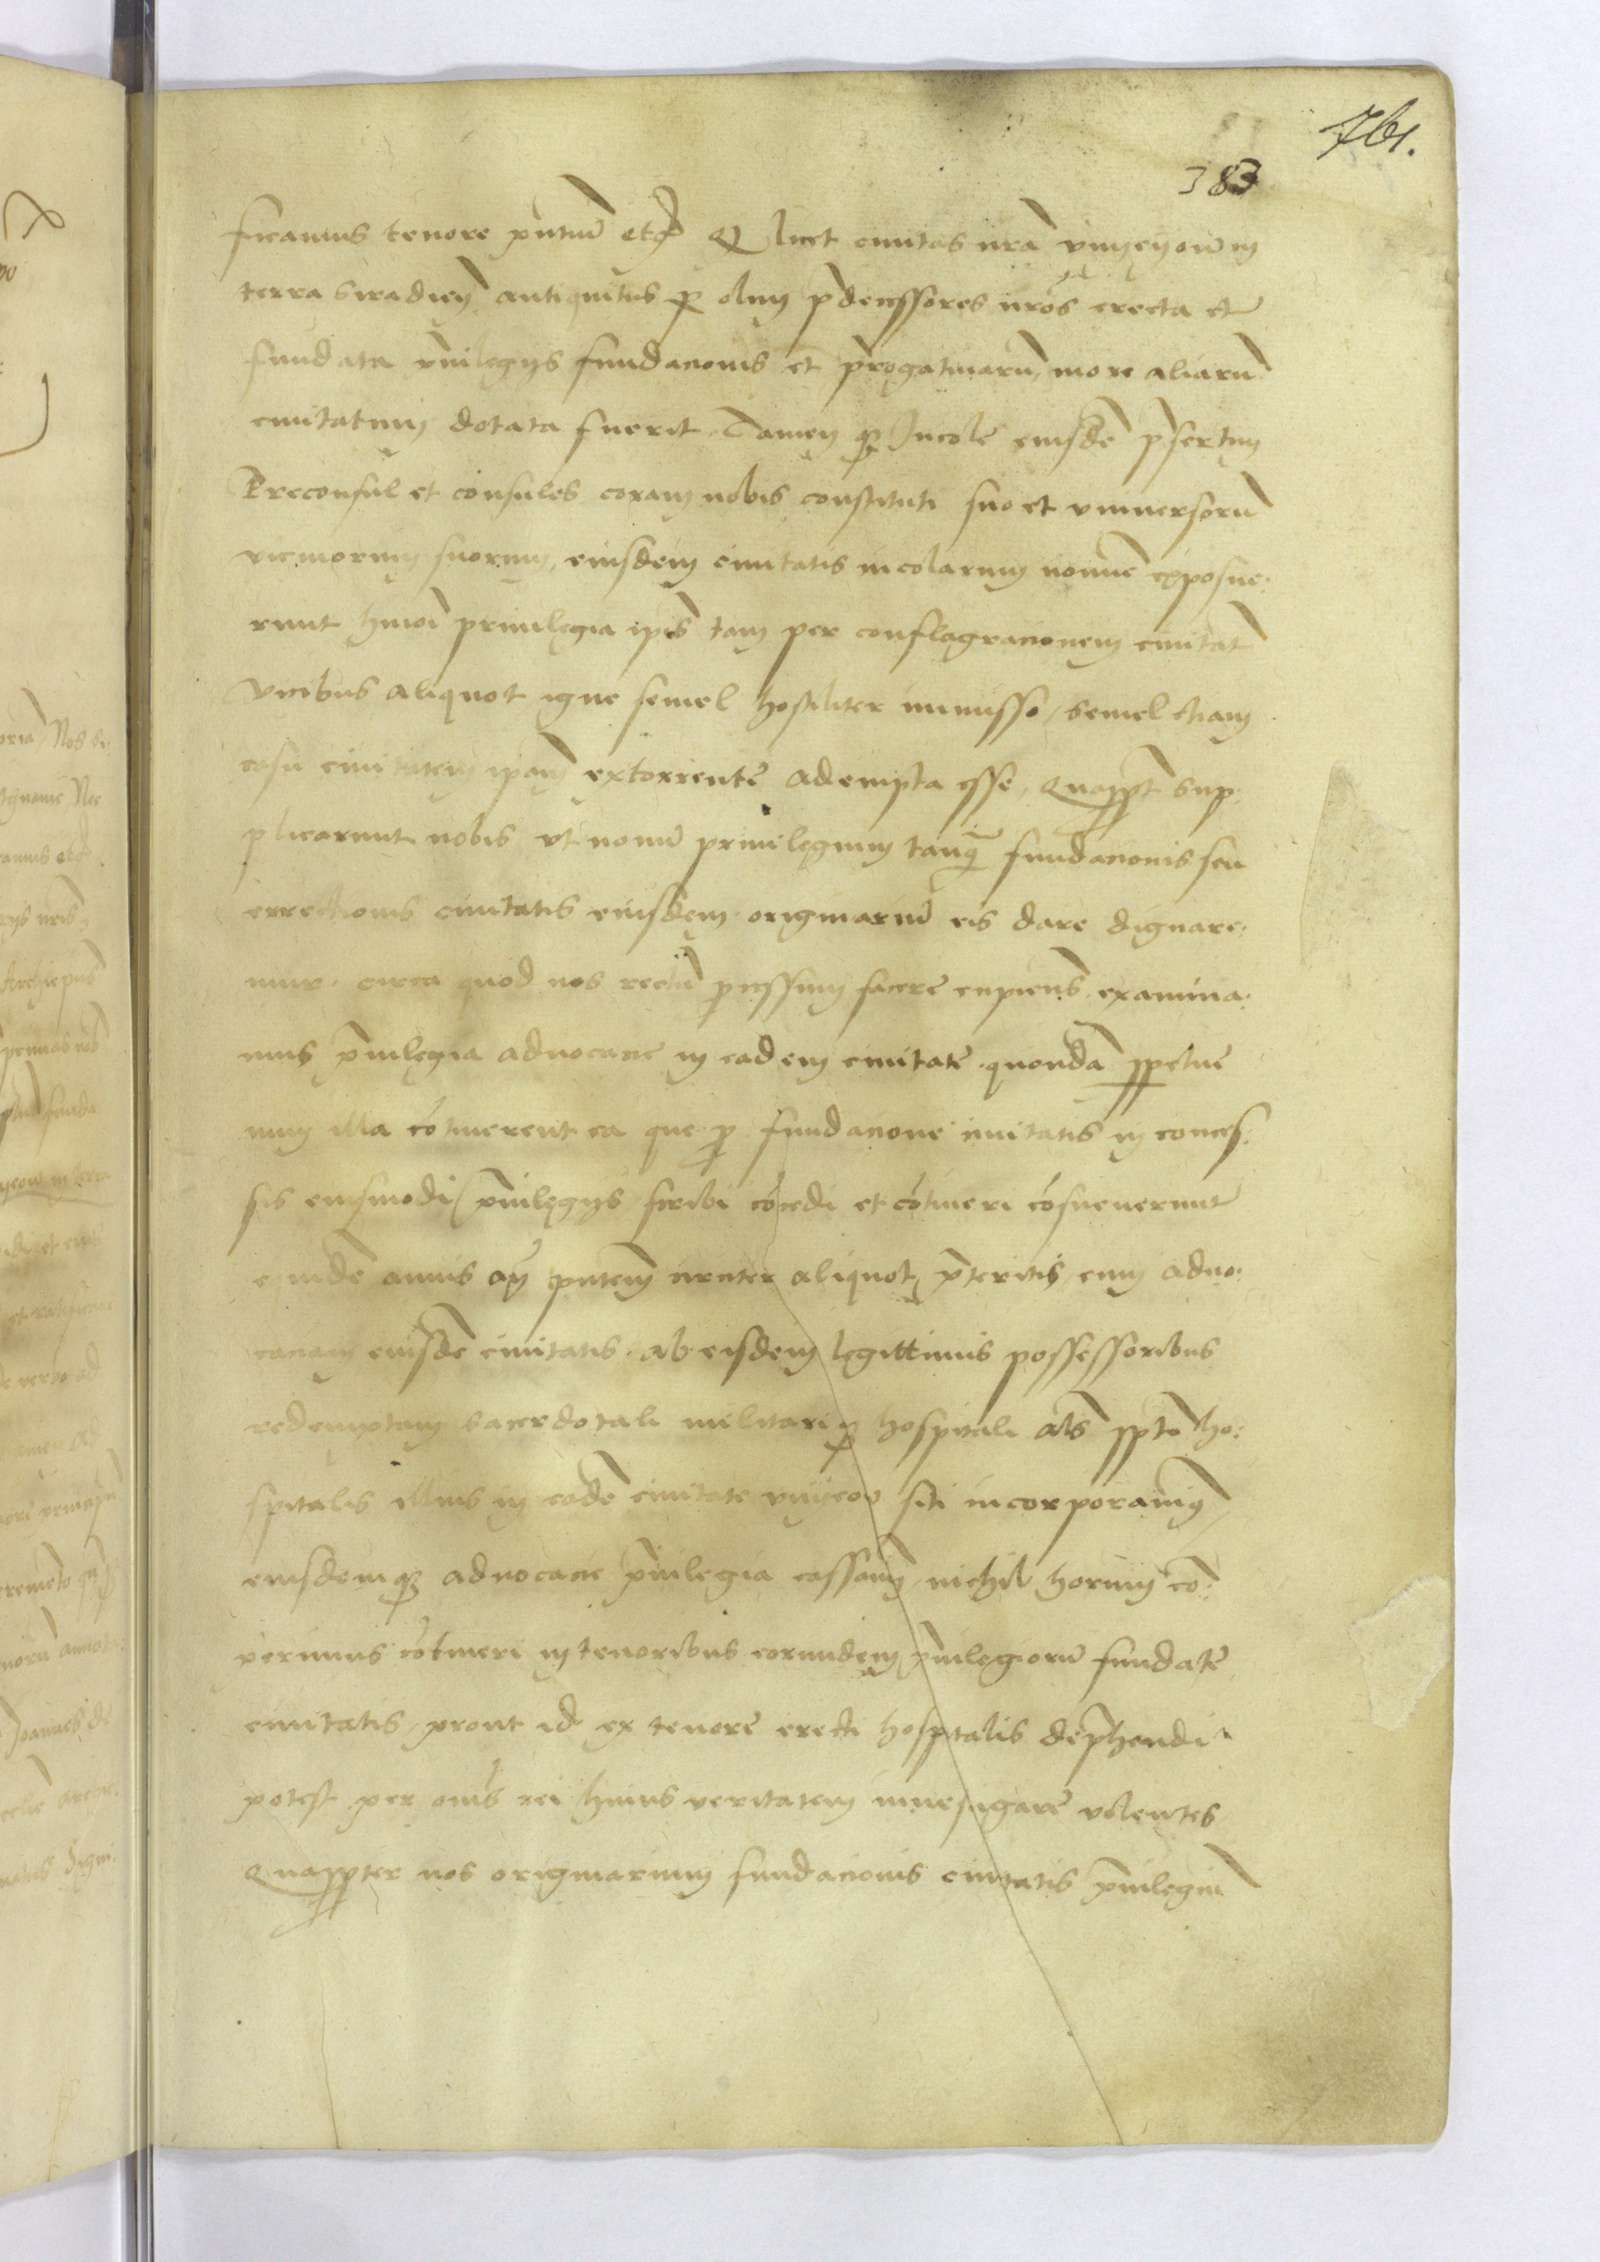 761.
383
ficamus tenore pntium etc Q licet civitas nra Vnyeyow in
terra Siradien antiquitus p olim pdecessores nros erecta et
fundata privilegijs fundacionis et prerogativarum more aliarum
civitatum dotata fuerit. Tamen qz Incole eiusde psertim
Preconsul et consules coram nobis constituti suo et vniversoru
vicinorum suorum, eiusdem civitatis incolarum nomine exposue:
runt hmoi privilegia ipis tam per conflagracionem civitat
vicibus aliquot igne semel hostiliter immisso, semel etiam
casu civitatem ipam extorrente adempta esse, Quappt sup
plicarunt nobis vt novu privilegium tanq fundacionis seu
errectionis civitatis eiusdem originariu eis dare dignare:
mur. circa quod nos rectu pcessum facere cupiens examina:
mus privilegia advocacie in eadem civitate quonda ppetue
num illa cotinerent ea que p fundacione civitatis in conces:
sis eiusmodi privilegijs scribi cocedi et cotineri cosueverunt
annis an aliquot preteritis, cum advo:
caciam eiusde civitatis ab eisdem legittimis possessoribus
redemptam sacerdotali militariqz hospitali als ppto ho:
spitalis illius in eade civitate Vnyeow siti incorporavimus
eiusdemqz advocacie privilegia cassavim, nichil horum co:
perimus cotineri in tenoribus eorundem privilegioru fundate
civitatis, prout id ex tenore erecti hospitalis deprehendi
potest per omis rei huius veritatem investigare volentes
Quappter nos originarium fundacionis civitatis privilegiu